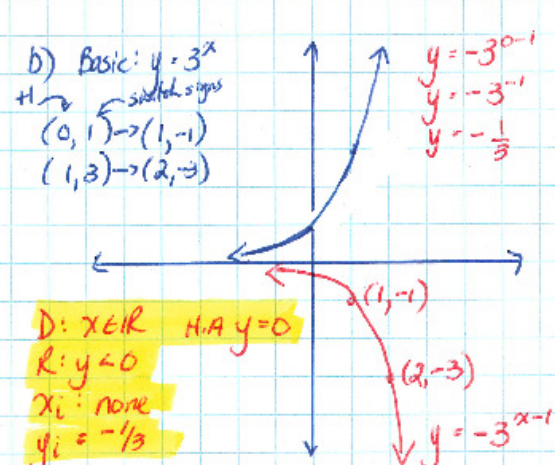 b) Basic: y = 3^x
+1 switch signs
(0, 1) → (1, -1)
(1, 3) → (2, -3)
y = -3^{0-1}
y = -3^{-1}
y = -1/3
(1, -1)
(2, -3)
y = -3^{x-1}
D: x ∈ ℝ H.A y = 0
R: y < 0
xi: none
yi = -1/3